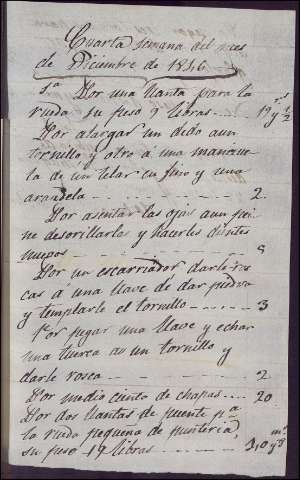 Cuarta semana del mes
de Diciembre de 1846
Sa. Por una llanta para la
rueda su peso 9 libras .. 19 rs y 1/2
Por alargar un dedo a un
tornillo y otro á una mancue
la de un telar en fino y una
arandela 2.
Por asentar las ojas a un pei
ne desorillarlas y hacerles dientes
nuevos 5
Por un escarriador darle ros
cas á una llave de dar piedra
y templarle el tornillo 3
Por pegar una llave y echar
una tuerca a un tornillo y
darle rosca 2
Por medio ciento de chapas 20
Por dos llantas de puente pa
la rueda pequeña de punteria,
su peso 17 libras